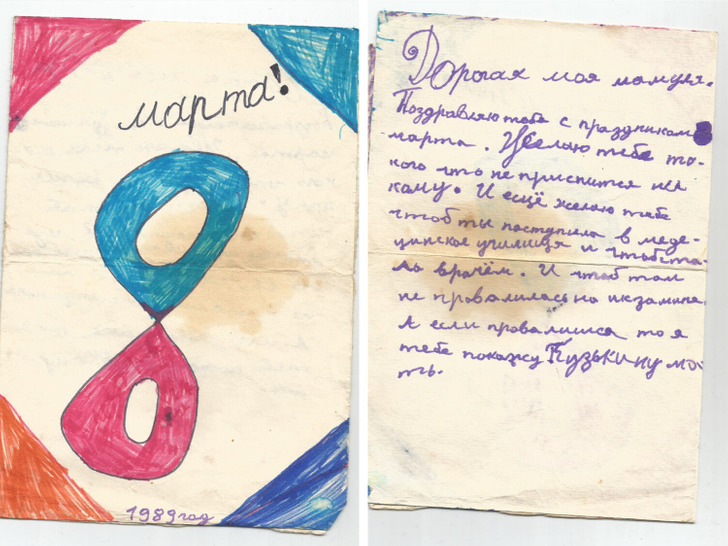 марта!
8
1989 год
Дорогая моя мамуля.
Поздравляю тебя с праздником 8
марта. Желаю тебе та-
кого что не приспится ни
кому. И ещё желаю тебе
чтоб ты поступила в меде-
цинское училище и чтоб ста-
ла врачём. И чтоб там
не провалилась на икзамине.
А если провалишся то я
тебе покажу Кузькину ма-
ть.